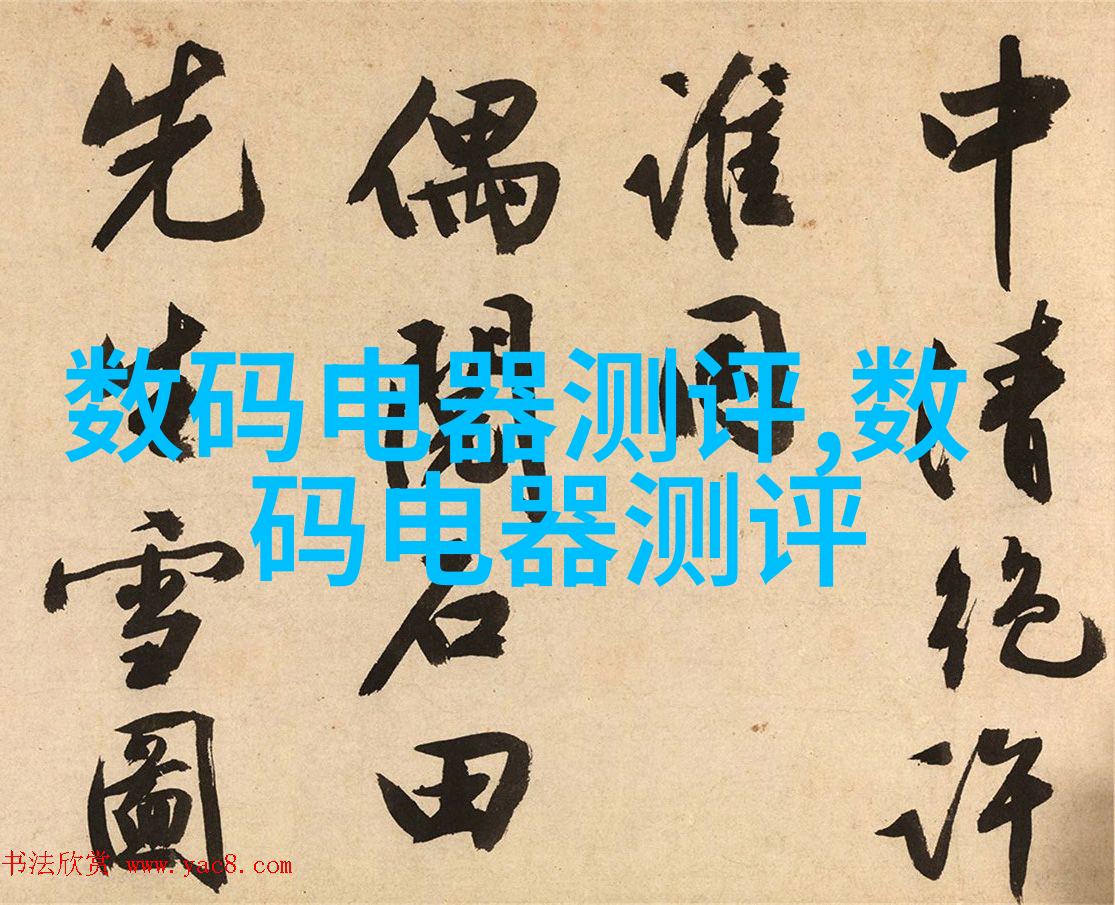 数码电器测评,数
码电器测评
中清絶許
誰同
偶閲石田
先生雪圖
书法欣赏 www.yac8.com